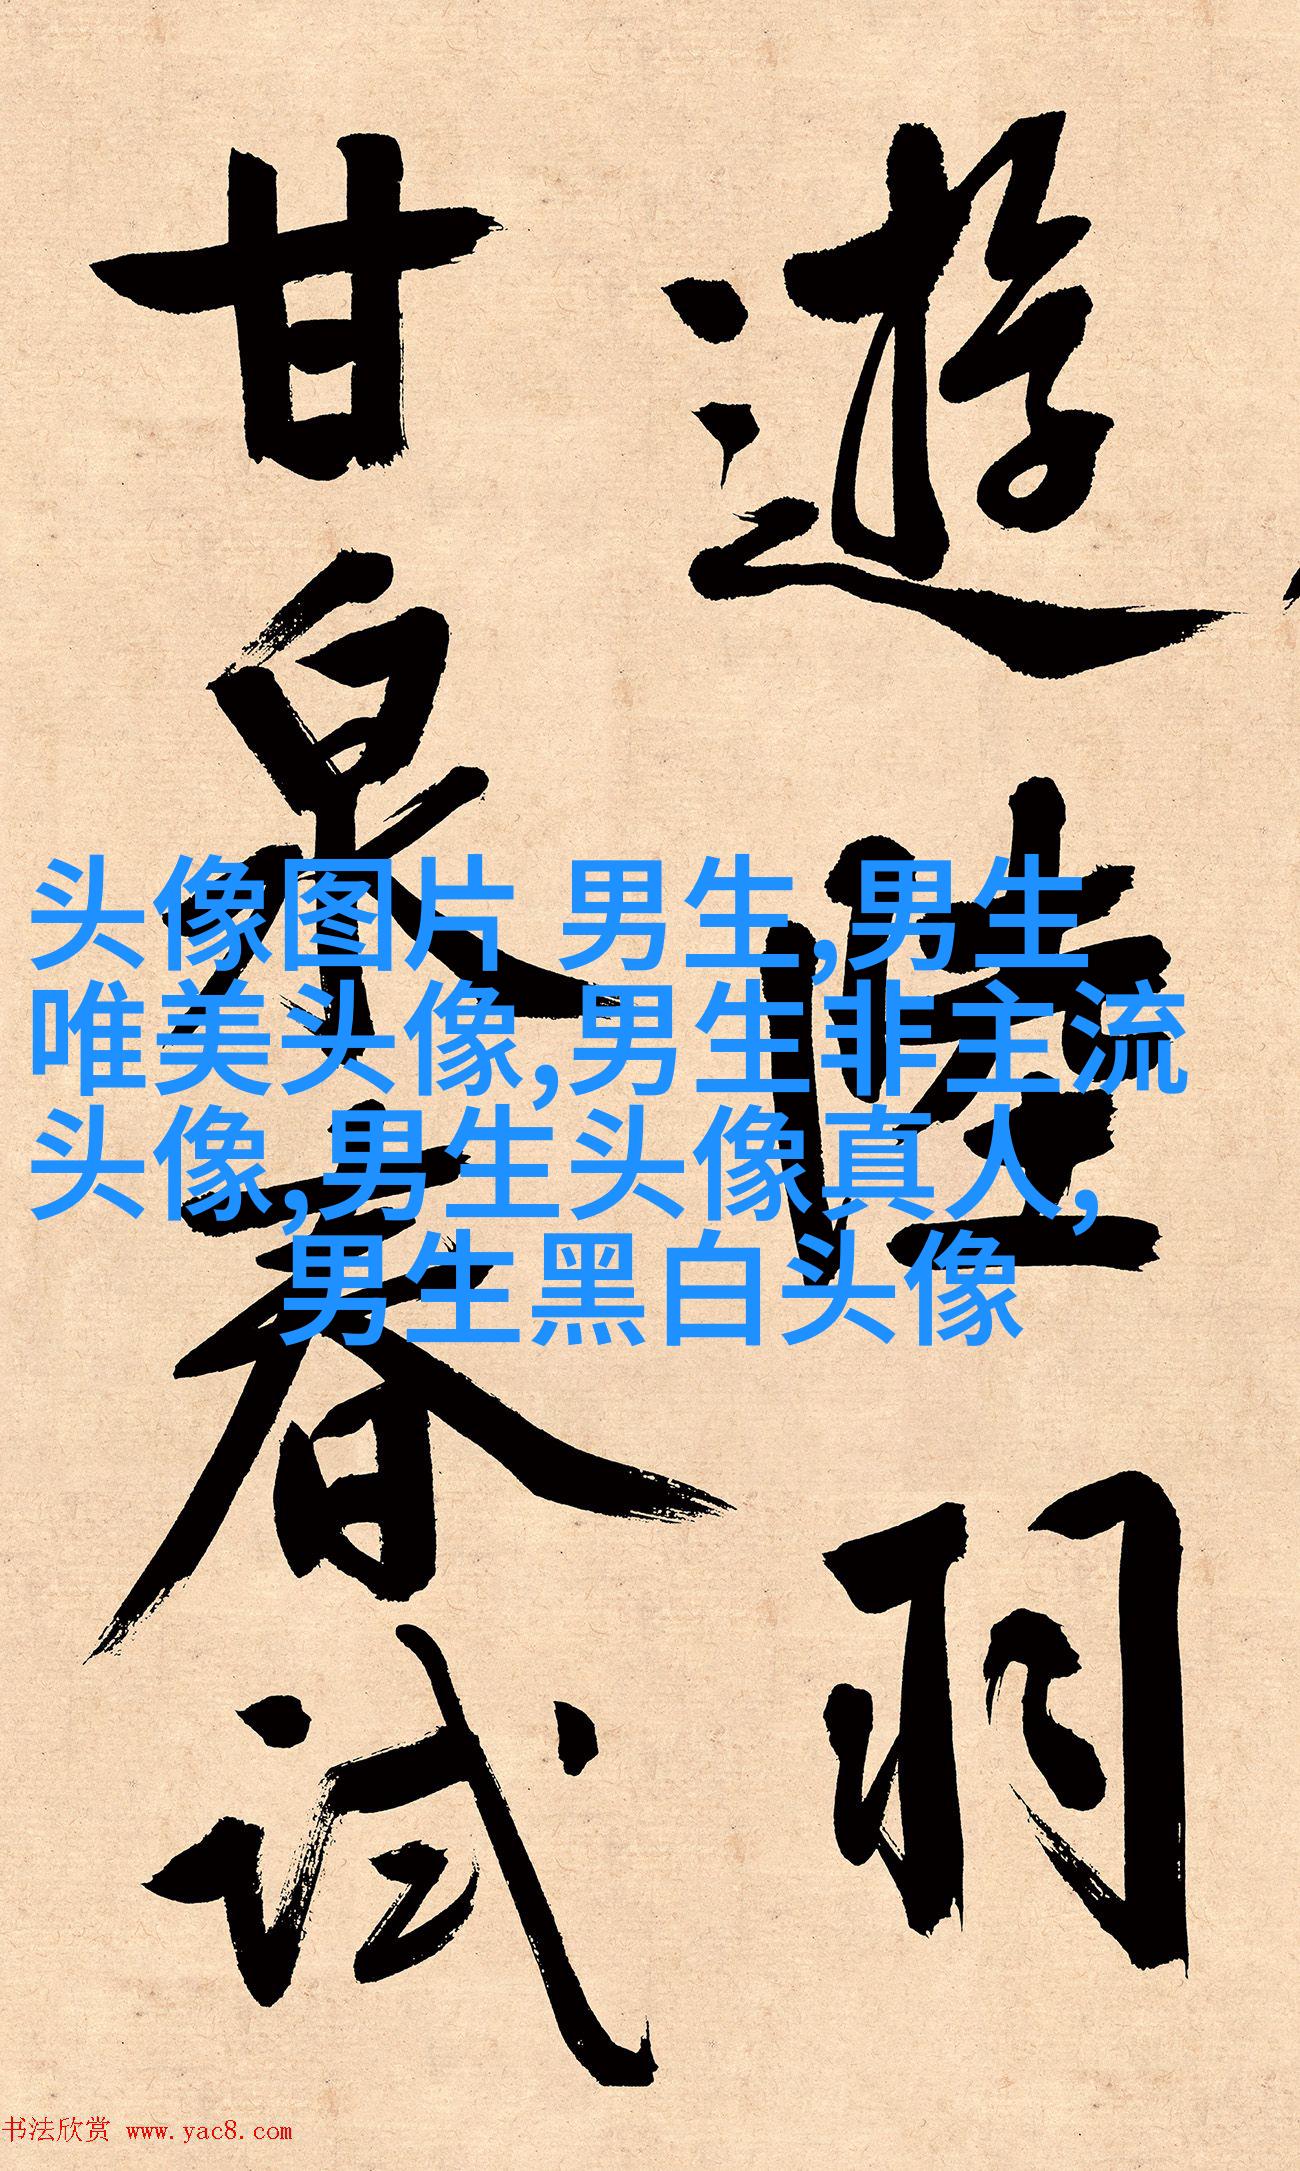 遊陸羽
甘泉春試
头像图片 男生,男生
唯美头像,男生非主流
头像,男生头像真人,
男生黑白头像
书法欣赏 www.yac8.com